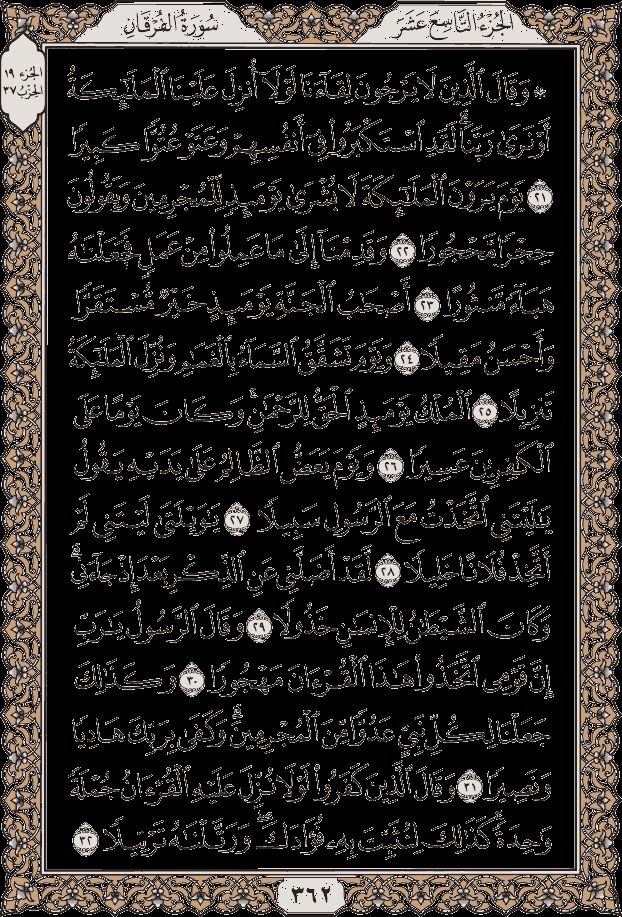 الجزء التاسع عشر
سورة الفرقان
الجزء ١٩
الحزب ٣٧
۞ وَقَالَ ٱلَّذِينَ لَا يَرْجُونَ لِقَآءَنَا لَوْلَآ أُنزِلَ عَلَيْنَا ٱلْمَلَٰٓئِكَةُ
أَوْ نَرَىٰ رَبَّنَا ۗ لَقَدِ ٱسْتَكْبَرُوا۟ فِىٓ أَنفُسِهِمْ وَعَتَوْ عُتُوًّا كَبِيرًا
٢١ يَوْمَ يَرَوْنَ ٱلْمَلَٰٓئِكَةَ لَا بُشْرَىٰ يَوْمَئِذٍ لِّلْمُجْرِمِينَ وَيَقُولُونَ
حِجْرًا مَّحْجُورًا ٢٢ وَقَدِمْنَآ إِلَىٰ مَا عَمِلُوا۟ مِنْ عَمَلٍ فَجَعَلْنَٰهُ
هَبَآءً مَّنثُورًا ٢٣ أَصْحَٰبُ ٱلْجَنَّةِ يَوْمَئِذٍ خَيْرٌ مُّسْتَقَرًّا
وَأَحْسَنُ مَقِيلًا ٢٤ وَيَوْمَ تَشَقَّقُ ٱلسَّمَآءُ بِٱلْغَمَٰمِ وَنُزِّلَ ٱلْمَلَٰٓئِكَةُ
تَنزِيلًا ٢٥ ٱلْمُلْكُ يَوْمَئِذٍ ٱلْحَقُّ لِلرَّحْمَٰنِ ۚ وَكَانَ يَوْمًا عَلَى
ٱلْكَٰفِرِينَ عَسِيرًا ٢٦ وَيَوْمَ يَعَضُّ ٱلظَّالِمُ عَلَىٰ يَدَيْهِ يَقُولُ
يَٰلَيْتَنِى ٱتَّخَذْتُ مَعَ ٱلرَّسُولِ سَبِيلًا ٢٧ يَٰوَيْلَتَىٰ لَيْتَنِى لَمْ
أَتَّخِذْ فُلَانًا خَلِيلًا ٢٨ لَّقَدْ أَضَلَّنِى عَنِ ٱلذِّكْرِ بَعْدَ إِذْ جَآءَنِى ۗ
وَكَانَ ٱلشَّيْطَٰنُ لِلْإِنسَٰنِ خَذُولًا ٢٩ وَقَالَ ٱلرَّسُولُ يَٰرَبِّ
إِنَّ قَوْمِى ٱتَّخَذُوا۟ هَٰذَا ٱلْقُرْءَانَ مَهْجُورًا ٣٠ وَكَذَٰلِكَ
جَعَلْنَا لِكُلِّ نَبِىٍّ عَدُوًّا مِّنَ ٱلْمُجْرِمِينَ ۗ وَكَفَىٰ بِرَبِّكَ هَادِيًا
وَنَصِيرًا ٣١ وَقَالَ ٱلَّذِينَ كَفَرُوا۟ لَوْلَا نُزِّلَ عَلَيْهِ ٱلْقُرْءَانُ جُمْلَةً
وَٰحِدَةً ۚ كَذَٰلِكَ لِنُثَبِّتَ بِهِۦ فُؤَادَكَ ۖ وَرَتَّلْنَٰهُ تَرْتِيلًا ٣٢
٣٦٢